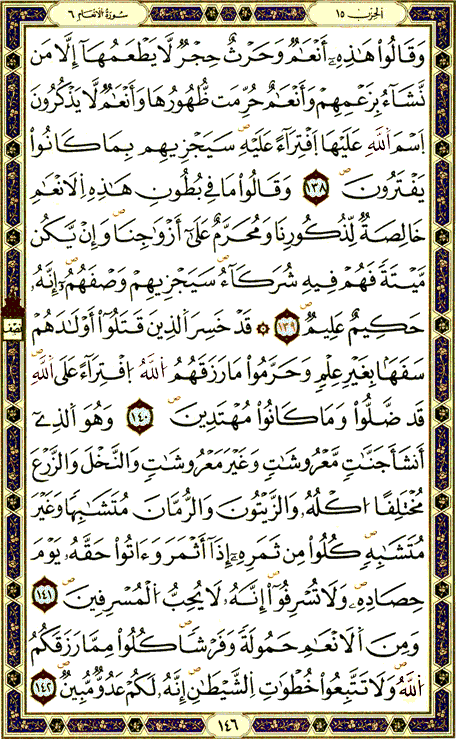 الحزب ١٥
سورة الأنعام ٦
وَقَالُواْ هَٰذِهِۦٓ أَنْعَٰمٌ وَحَرْثٌ حِجْرٌ لَّا يَطْعَمُهَآ إِلَّا مَن
نَّشَآءُ بِزَعْمِهِمْ وَأَنْعَٰمٌ حُرِّمَت ظُّهُورُهَا وَأَنْعَٰمٌ لَّا يَذْكُرُونَ
اَسْمَ اَللَّهِ عَلَيْهَا اَفْتِرَآءً عَلَيْهِ سَيَجْزِيهِم بِمَا كَانُواْ
يَفْتَرُونَ ١٣٨ وَقَالُواْ مَا فِي بُطُونِ هَٰذِهِ اِلَانْعَٰمِ
خَالِصَةٌ لِّذُكُورِنَا وَمُحَرَّمٌ عَلَىٰٓ أَزْوَٰجِنَا وَإِنْ يَّكُن
مَّيْتَةً فَهُمْ فِيهِ شُرَكَآءُ سَيَجْزِيهِمْ وَصْفَهُمُۥٓ إِنَّهُۥ
حَكِيمٌ عَلِيمٌ ١٣٩ ۞ قَدْ خَسِرَ اَلذِينَ قَتَلُوٓاْ أَوْلَٰدَهُمْ
سَفَهاً بِغَيْرِ عِلْمٍ وَحَرَّمُواْ مَا رَزَقَهُمُ اُللَّهُ اُفْتِرَآءً عَلَى اَللَّهِ
قَد ضَّلُّواْ وَمَا كَانُواْ مُهْتَدِينَ ١٤٠ وَهُوَ اَلذِےٓ
أَنشَأَ جَنَّٰتٍ مَّعْرُوشَٰتٍ وَغَيْرَ مَعْرُوشَٰتٍ وَالنَّخْلَ وَالزَّرْعَ
مُخْتَلِفًا اُكْلُهُۥ وَالزَّيْتُونَ وَالرُّمَّانَ مُتَشَٰبِهاً وَغَيْرَ
مُتَشَٰبِهٍ كُلُواْ مِن ثَمَرِهِۦٓ إِذَآ أَثْمَرَ وَءَاتُواْ حَقَّهُۥ يَوْمَ
حِصَادِهِۦ وَلَا تُسْرِفُوٓاْ إِنَّهُۥ لَا يُحِبُّ اُلْمُسْرِفِينَ ١٤١
وَمِنَ اَلَانْعَٰمِ حَمُولَةً وَفَرْشاً كُلُواْ مِمَّا رَزَقَكُمُ
اُللَّهُ وَلَا تَتَّبِعُواْ خُطْوَٰتِ اِلشَّيْطَٰنِ إِنَّهُۥ لَكُمْ عَدُوٌّ مُّبِينٌ ١٤٢
نصف
١٤٦